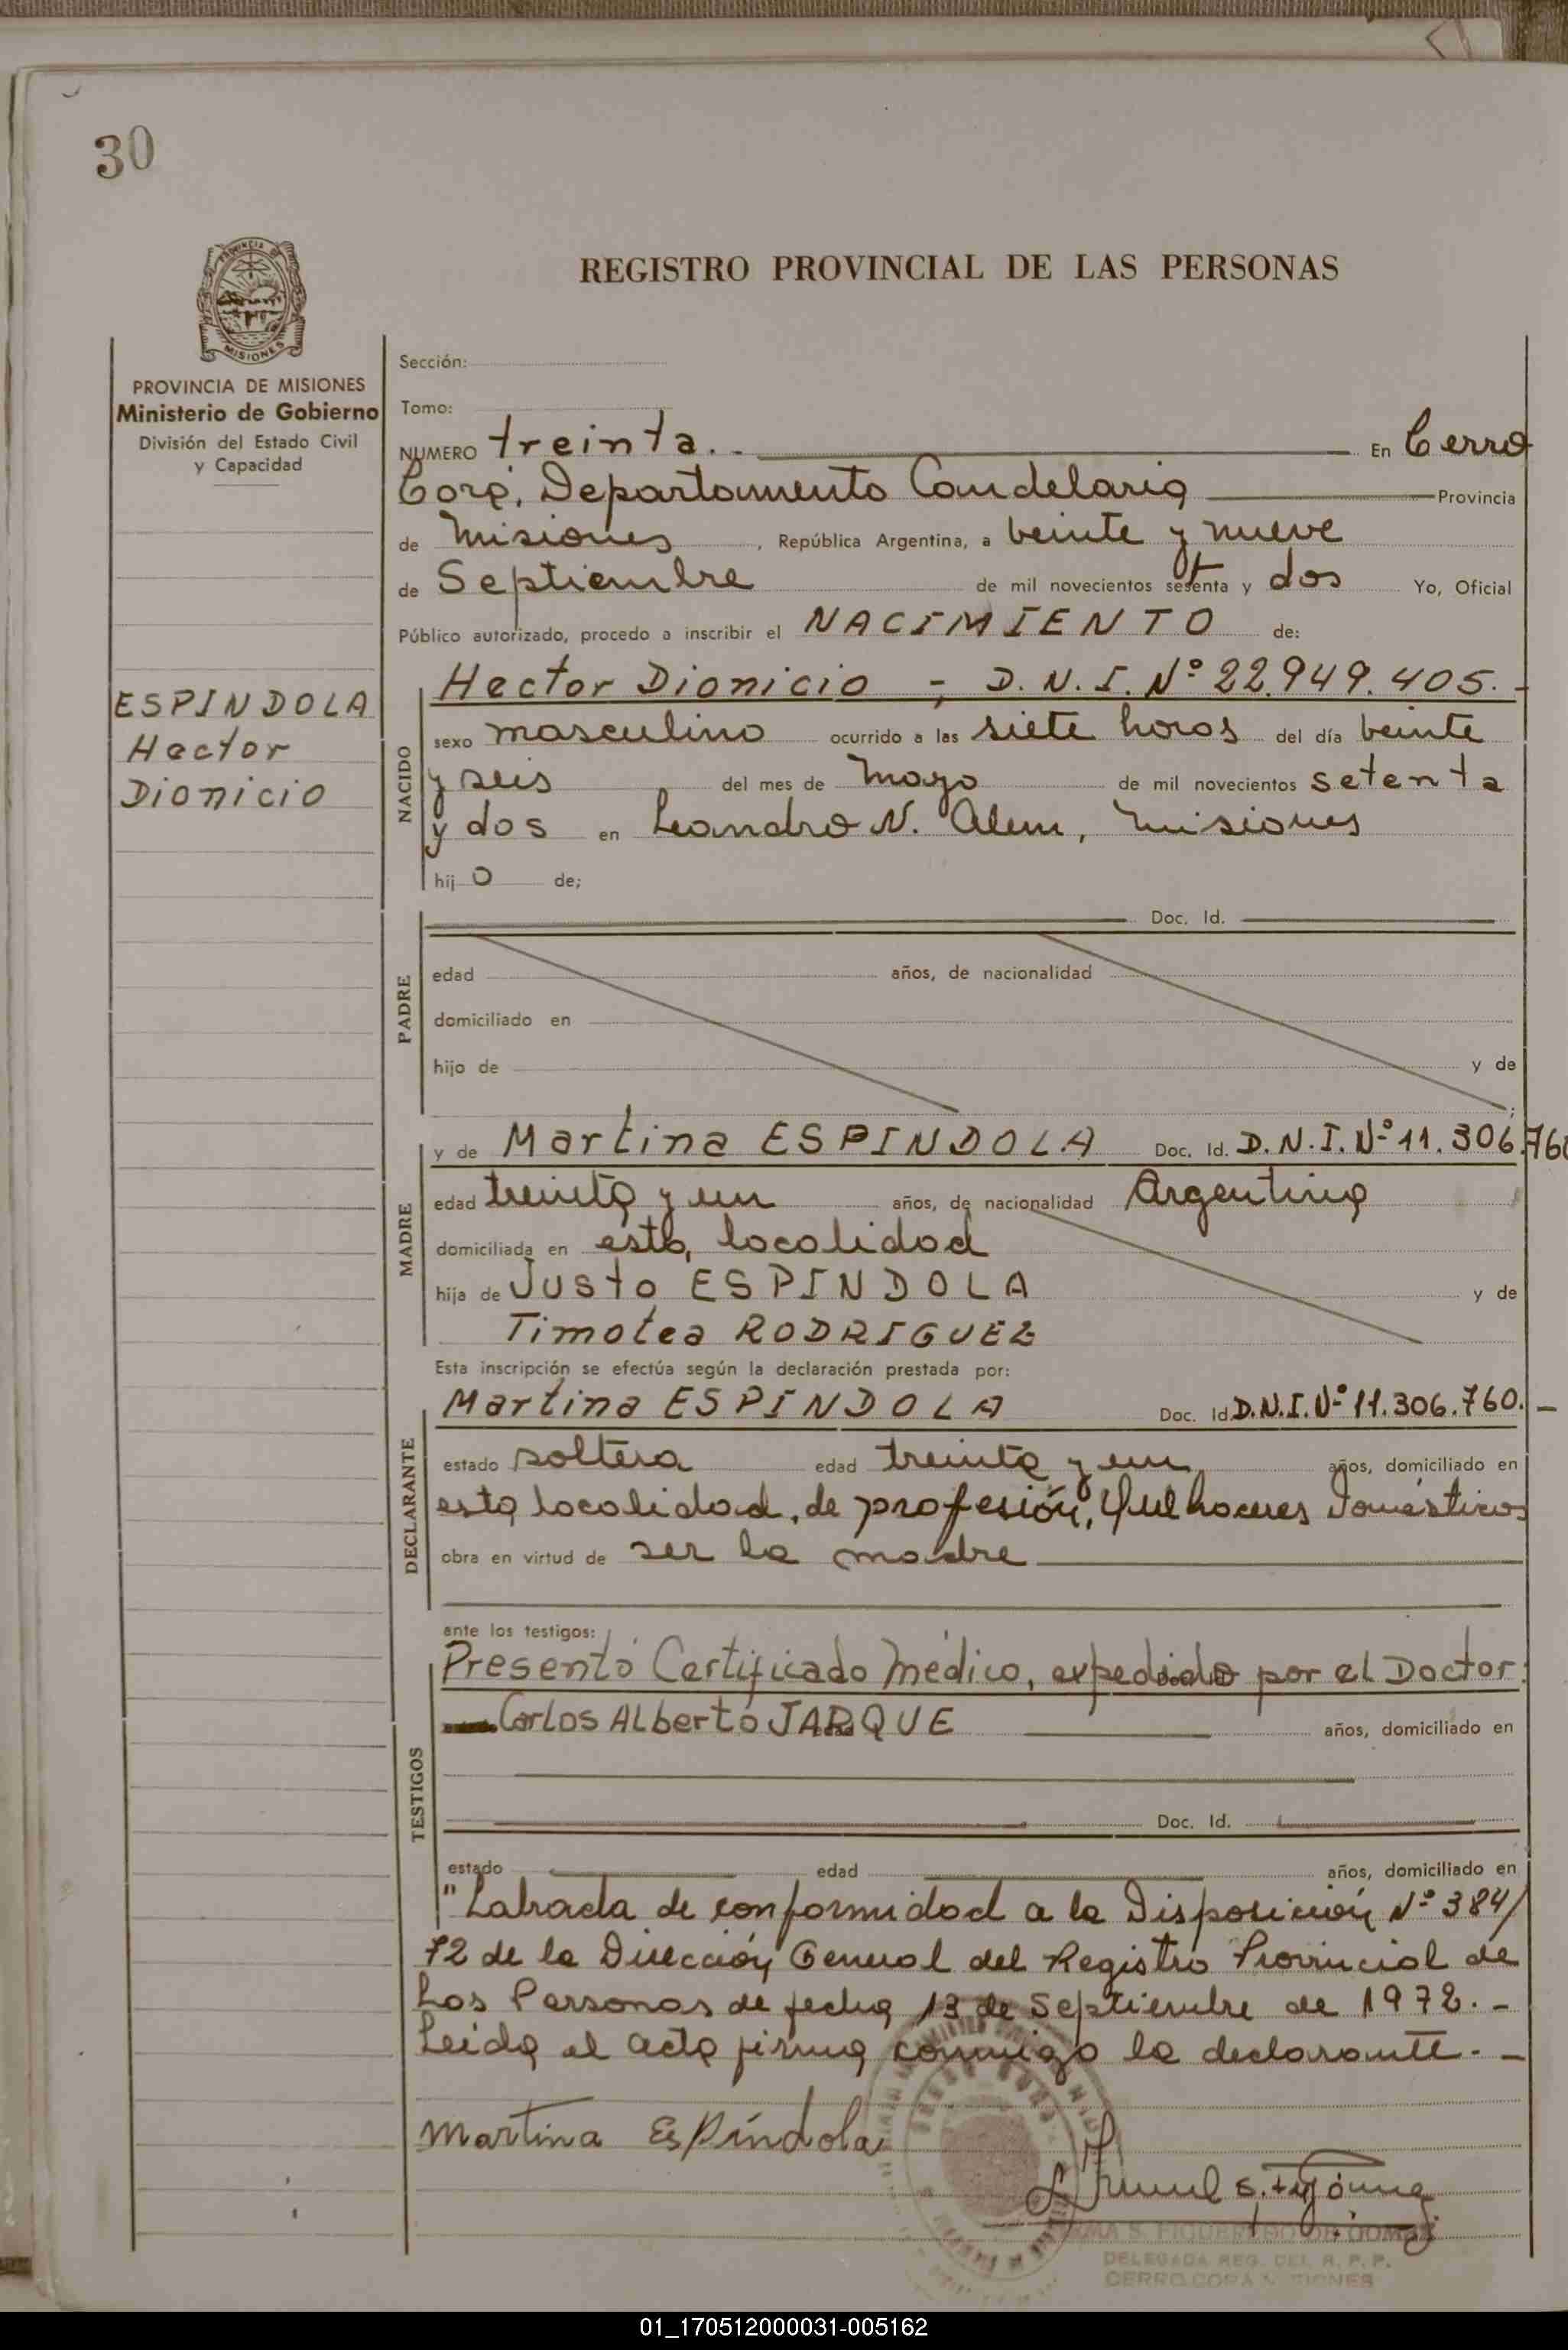 30
PROVINCIA DE MISIONES
Ministerio de Gobierno
División del Estado Civil
y Capacidad
ESPINDOLA
Hector
Dionicio
REGISTRO PROVINCIAL DE LAS PERSONAS
Sección:
Tomo:
NUMERO treinta.- En Cerro
Corá, Departamento Candelaria Provincia
de Misiones, República Argentina, a veinte y nueve
de Septiembre de mil novecientos setenta y dos Yo, Oficial
Público autorizado, procedo a inscribir el NACIMIENTO de:
NACIDO
Hector Dionicio -, D.N.I. Nº 22.949.405.-
sexo masculino ocurrido a las siete horas del día veinte
y seis del mes de Mayo de mil novecientos setenta
y dos en Leandro N. Alem, Misiones
hijo de;
PADRE
Doc. Id.
edad años, de nacionalidad
domiciliado en
hijo de y de
;
MADRE
y de Martina ESPINDOLA Doc. Id. D.N.I. Nº 11.306.760
edad treinta y un años, de nacionalidad Argentina
domiciliada en esta localidad
hija de Justo ESPINDOLA y de
Timotea RODRIGUEZ
Esta inscripción se efectúa según la declaración prestada por:
DECLARANTE
Martina ESPINDOLA Doc. Id. D.N.I. Nº 11.306.760.-
estado soltera edad treinta y un años, domiciliado en
esta localidad, de profesión, Quehaceres Domésticos
obra en virtud de ser la madre
ante los testigos:
TESTIGOS
Presentó Certificado Médico, expedido por el Doctor:
Carlos Alberto JARQUE años, domiciliado en
Doc. Id.
estado edad años, domiciliado en
"Labrada de conformidad a la Disposición Nº 384/
72 de la Dirección General del Registro Provincial de
Las Personas de fecha 13 de Septiembre de 1972.-
Leida el acta firma conmigo la declarante.-
Martina Espíndola
IRMA S. FIGUEREDO DE GOMEZ
DELEGADA REG. DEL R. P. P.
CERRO CORA MISIONES
01_170512000031-005162